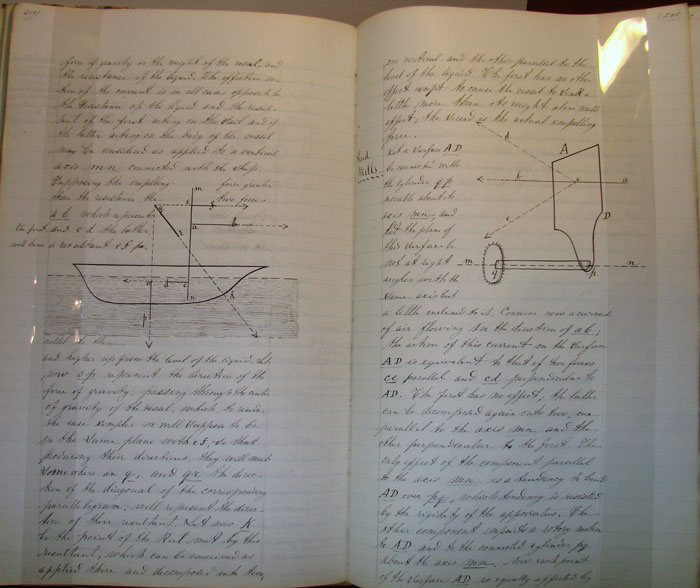 force of gravity or the weight of the vessel, and
the resistance of the liquid. The effective ac-
tion of the current is in all cases opposite to
the resistance of the liquid and the resul-
tant of the first acting on the sail and of
the latter acting on the body of the vessel
may be considered as applied to a vertical
axis mn connected with the ship.
Supposing the impelling force greater
than the resistance, the two forces
a b which represents
the first and c d the latter
will have a resultant e f
m
e
f
a
b
g
r
o
d
c
n
k
p
and higher up from the level of the liquid. Let
now o p represent the direction of the
force of gravity, passing through the center
of gravity of the vessel, which to make
the case simpler we will suppose to be
in the same plane with e f, so that
producing their directions, they will meet
somewhere in g, and gr the direc-
tion of the diagonal of the corresponding
parallelogram, will represent the direc-
tion of their resultant. Let now K
be the point of the keel met by this
resultant, which can be conceived as
applied there and decomposed into two,
one vertical and the other parallel to the
level of the liquid. The first has no other
effect except to cause the vessel to sink a
little more than its weight alone would
effect; the second is the actual impelling
force.
Wind
Mills.
Let a surface AD
be connected with
the cylinder q p
movable about its
axis mn, and
let the plane of
this surface be
not at right
angles with the
same axis but
A
d
b
c
a
e
D
m
q
p
n
a little inclined to it. Conceive now a current
of air flowing in the direction of a b;
the action of this current on the surface
AD is equivalent to that of two forces
c e parallel and c d perpendicular to
AD. The first has no effect, the latter
can be decomposed again into two, one
parallel to the axis mn and the
other perpendicular to the first. The
only effect of the component parallel
to the axis mn is a tendency to bend
AD over pq, which tendency is resisted
by the rigidity of the apparatus. The
other component imparts a rotory motion
to AD and to the connected cylinder pq
about the axis mn. Now each point
of the surface AD is equally affected by